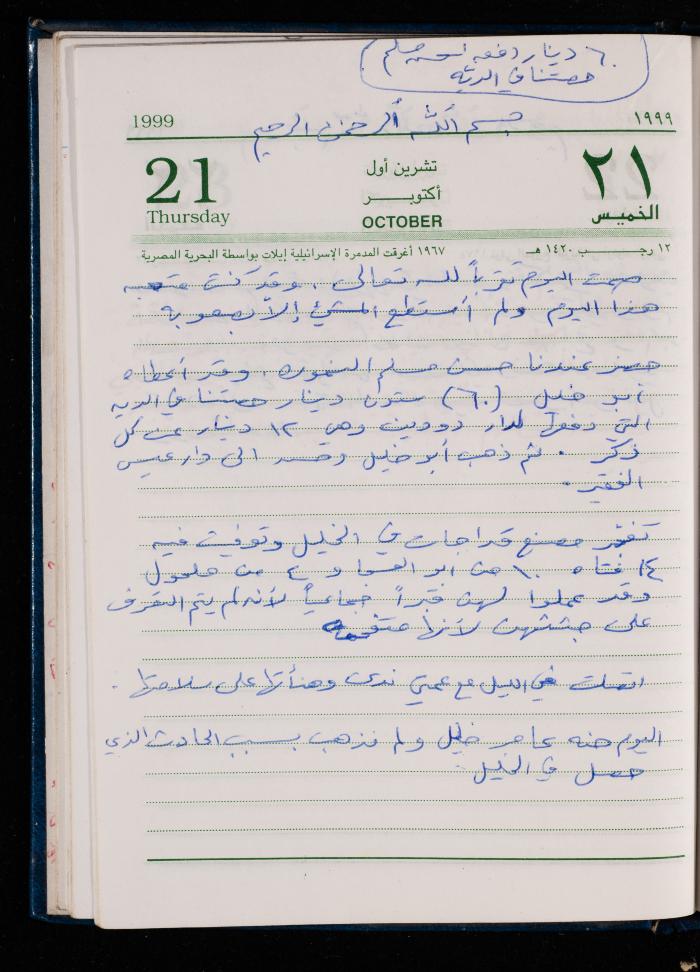 ٦٠ دينار دفعه لحسن مسلم
حصتنا في الدية
1999
١٩٩٩
بسم الله الرحمن الرحيم
21
Thursday
تشرين أول
أكتوبر
OCTOBER
٢١
الخميس
١٢ رجب ١٤٢٠ هـ
١٩٦٧ أغرقت المدمرة الإسرائيلية إيلات بواسطة البحرية المصرية
صمت اليوم تقرباً لله تعالى، وقد كنت متعبه
هذا اليوم ولم أستطع المشي إلا بصعوبة
حضر عندنا حسن مسلم النمورة، وقد أعطاه
أبو خليل (٦٠) ستون دينار حصتنا في الديه
التي دفعها لدار دودين وهي ١٢ دينار عن كل
ذكر. ثم ذهب أبو خليل و الى دار عيسى
الفقير.
تفجّر مصنع قداحات في الخليل وتوفيت فيه
١٤ فتاه ١٠ من ابو العسجا و ٤ من حلحول
وقد عملوا لهن قبراً جماعياً لأنه لم يتم التعرف
على جثثهن لأنها متفحمه
اتصلت في الليل مع عمتي ندى وهنأتها على سلامتها.
اليوم حنه عامر خليل ولم نذهب بسبب الحادث الذي
حصل في الخليل.